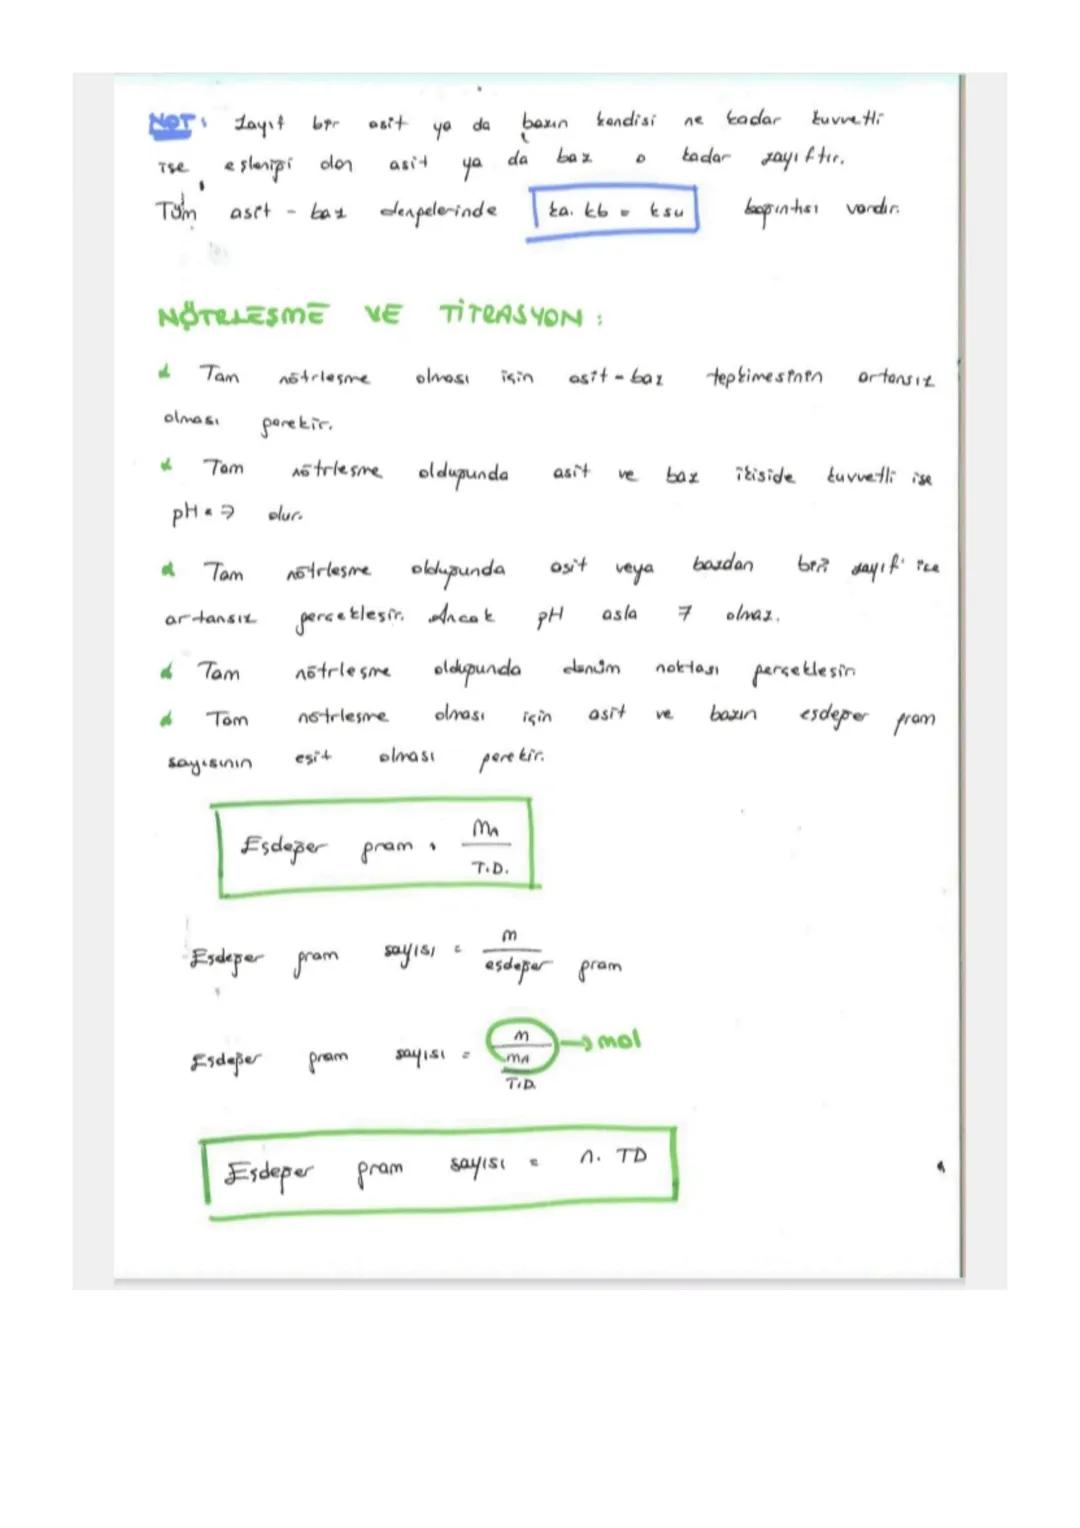 NOT: Zayıf bir asit ya da bazın kendisi ne kadar kuvvetli
ise, eşleniği olan asit ya da baz o kadar zayıftır.
Tüm asit - baz dengelerinde ka. kb = ksu bağıntısı vardır.
NÖTRLEŞME VE TİTRASYON:
Tam nötrleşme olması için asit - baz tepkimesinin artansız
olması gerekir.
Tam nötrleşme olduğunda asit ve baz ikiside kuvvetli ise
pH = 7 olur.
Tam nötrleşme olduğunda asit veya bazdan biri zayıf ise
artansız gerçekleşir. Ancak pH asla 7 olmaz.
Tam nötrleşme olduğunda dönüm noktası gerçekleşir
Tam nötrleşme olması için asit ve bazın eşdeğer gram
sayısının eşit olması gerekir.
Eşdeğer gram = MA / T.D.
Eşdeğer gram sayısı = m / eşdeğer gram
Eşdeğer gram sayısı = m / mA / T.D. → mol
Eşdeğer gram sayısı = n. TD